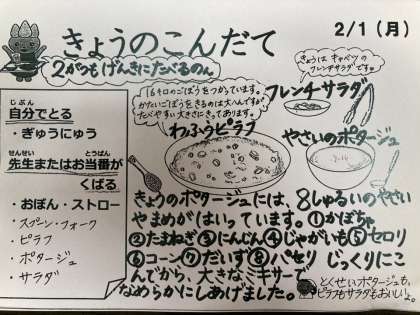 きょうのこんだて
2/1(月)
2がつも げんきにたべるのん
自分でとる
じぶん
・ぎゅうにゅう
先生またはお当番が
せんせい とうばん
くばる
・おぼん・ストロー
・スプーン・フォーク
・ピラフ
・ポタージュ
・サラダ
16キロのごぼうをつかっています。
かたいごぼうをきるのは大へんですが
たべやすい大きさにきってあります。
わふうピラフ
きょうは キャベツの
フレンチサラダです。
フレンチサラダ
やさいのポタージュ
きょうのポタージュには、8しゅるいのやさい
やまめがはいっています。①かぼちゃ
②たまねぎ③にんじん④じゃがいも⑤セロリ
⑥コーン⑦だいず⑧パセリ じっくりにこ
んでから、大きなミキサーで
なめらかにしあげました。
とくせいポタージュも、
ピラフもサラダもおいしいよ。